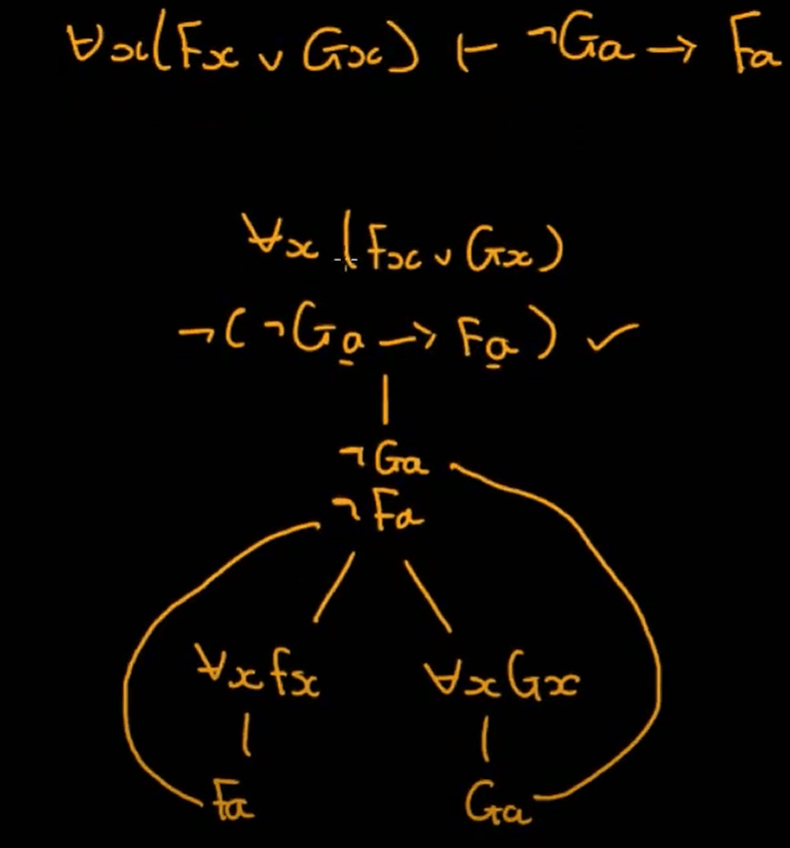 ∀x(Fx ∨ Gx) ⊢ ¬Ga → Fa
∀x (Fx ∨ Gx)
¬(¬Ga → Fa) ✓
¬Ga
¬Fa
∀xFx ∀xGx
Fa Ga